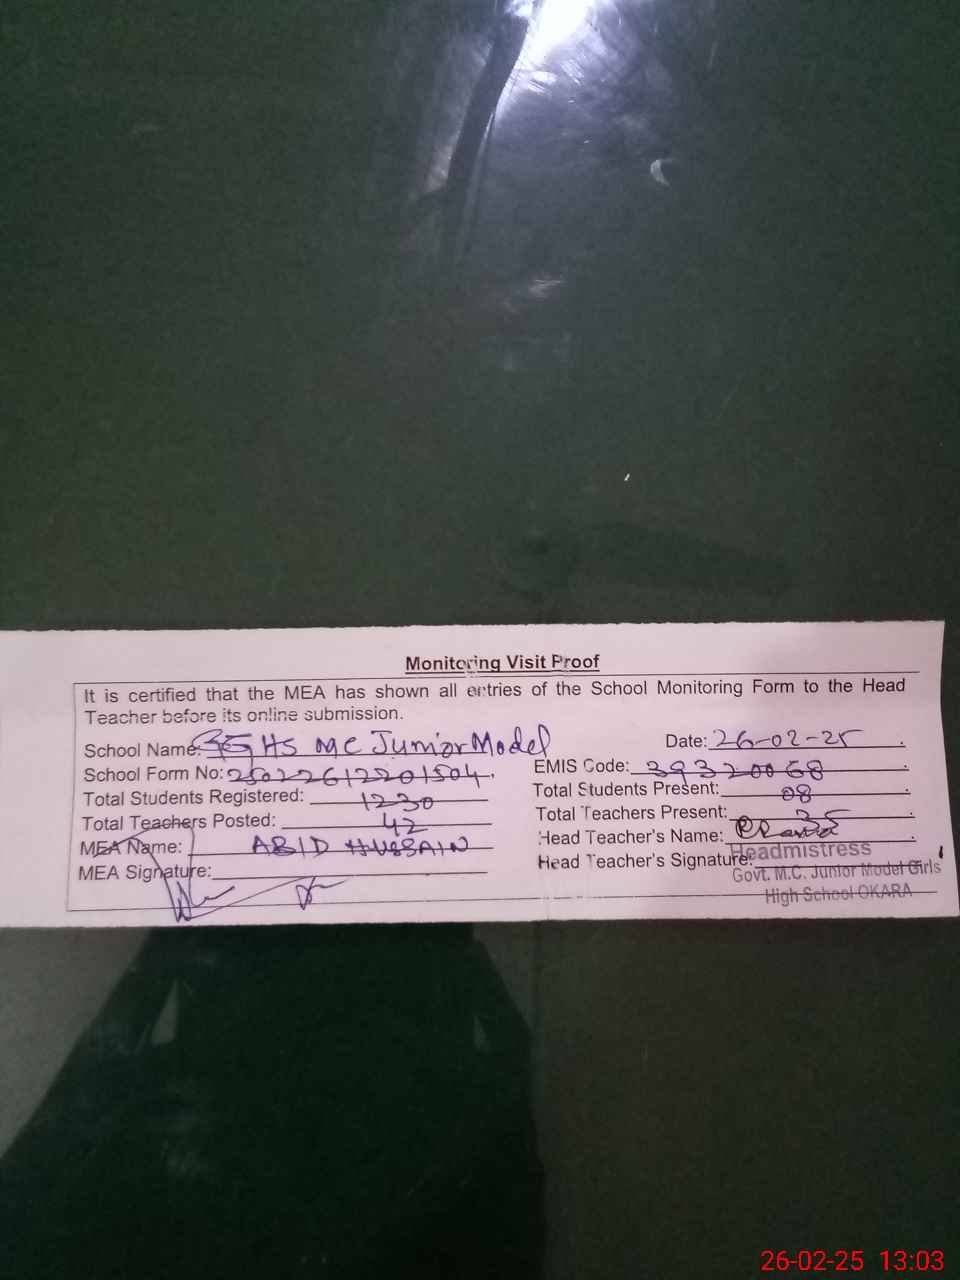 Monitoring Visit Proof
It is certified that the MEA has shown all entries of the School Monitoring Form to the Head
Teacher before its online submission.
School Name: GGHS MC Junior Model Date: 26-02-25
School Form No: 25022612201504 EMIS Code: 39320068
Total Students Registered: 1230 Total Students Present: 08
Total Teachers Posted: 42 Total Teachers Present: 35
MEA Name: ABID HUSSAIN Head Teacher's Name:
MEA Signature: Head Teacher's Signature:
Headmistress
Govt. M.C. Junior Model Girls
High School OKARA
26-02-25 13:03